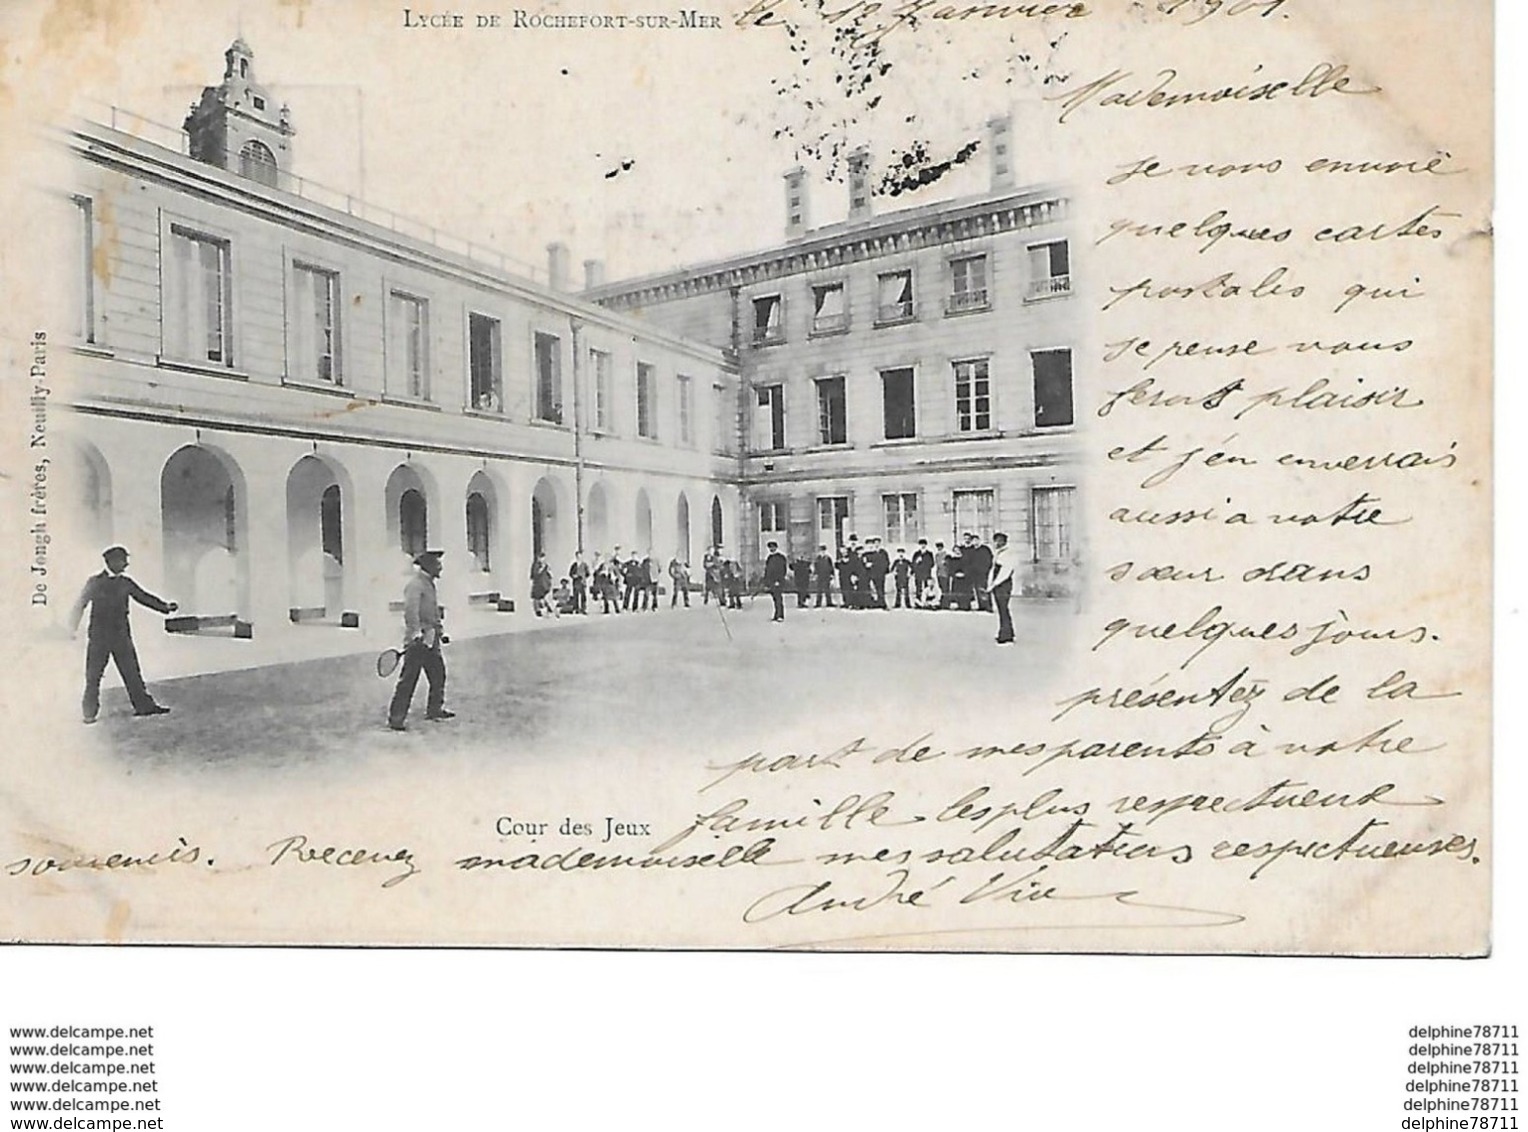 LYCÉE DE ROCHEFORT-SUR-MER le 12 Janvier 1901.
Mademoiselle
je vous envoie
quelques cartes
postales qui
je pense vous
feront plaisir
et j'en enverrais
aussi a votre
sœur dans
quelques jours.
présentez de la
part de mes parents à votre
famille les plus respectueux
Cour des Jeux
souvenirs. Recevez mademoiselle mes salutations respectueuses.
André
De Jongh frères, Neuilly-Paris
www.delcampe.net
www.delcampe.net
www.delcampe.net
www.delcampe.net
www.delcampe.net
www.delcampe.net
delphine78711
delphine78711
delphine78711
delphine78711
delphine78711
delphine78711